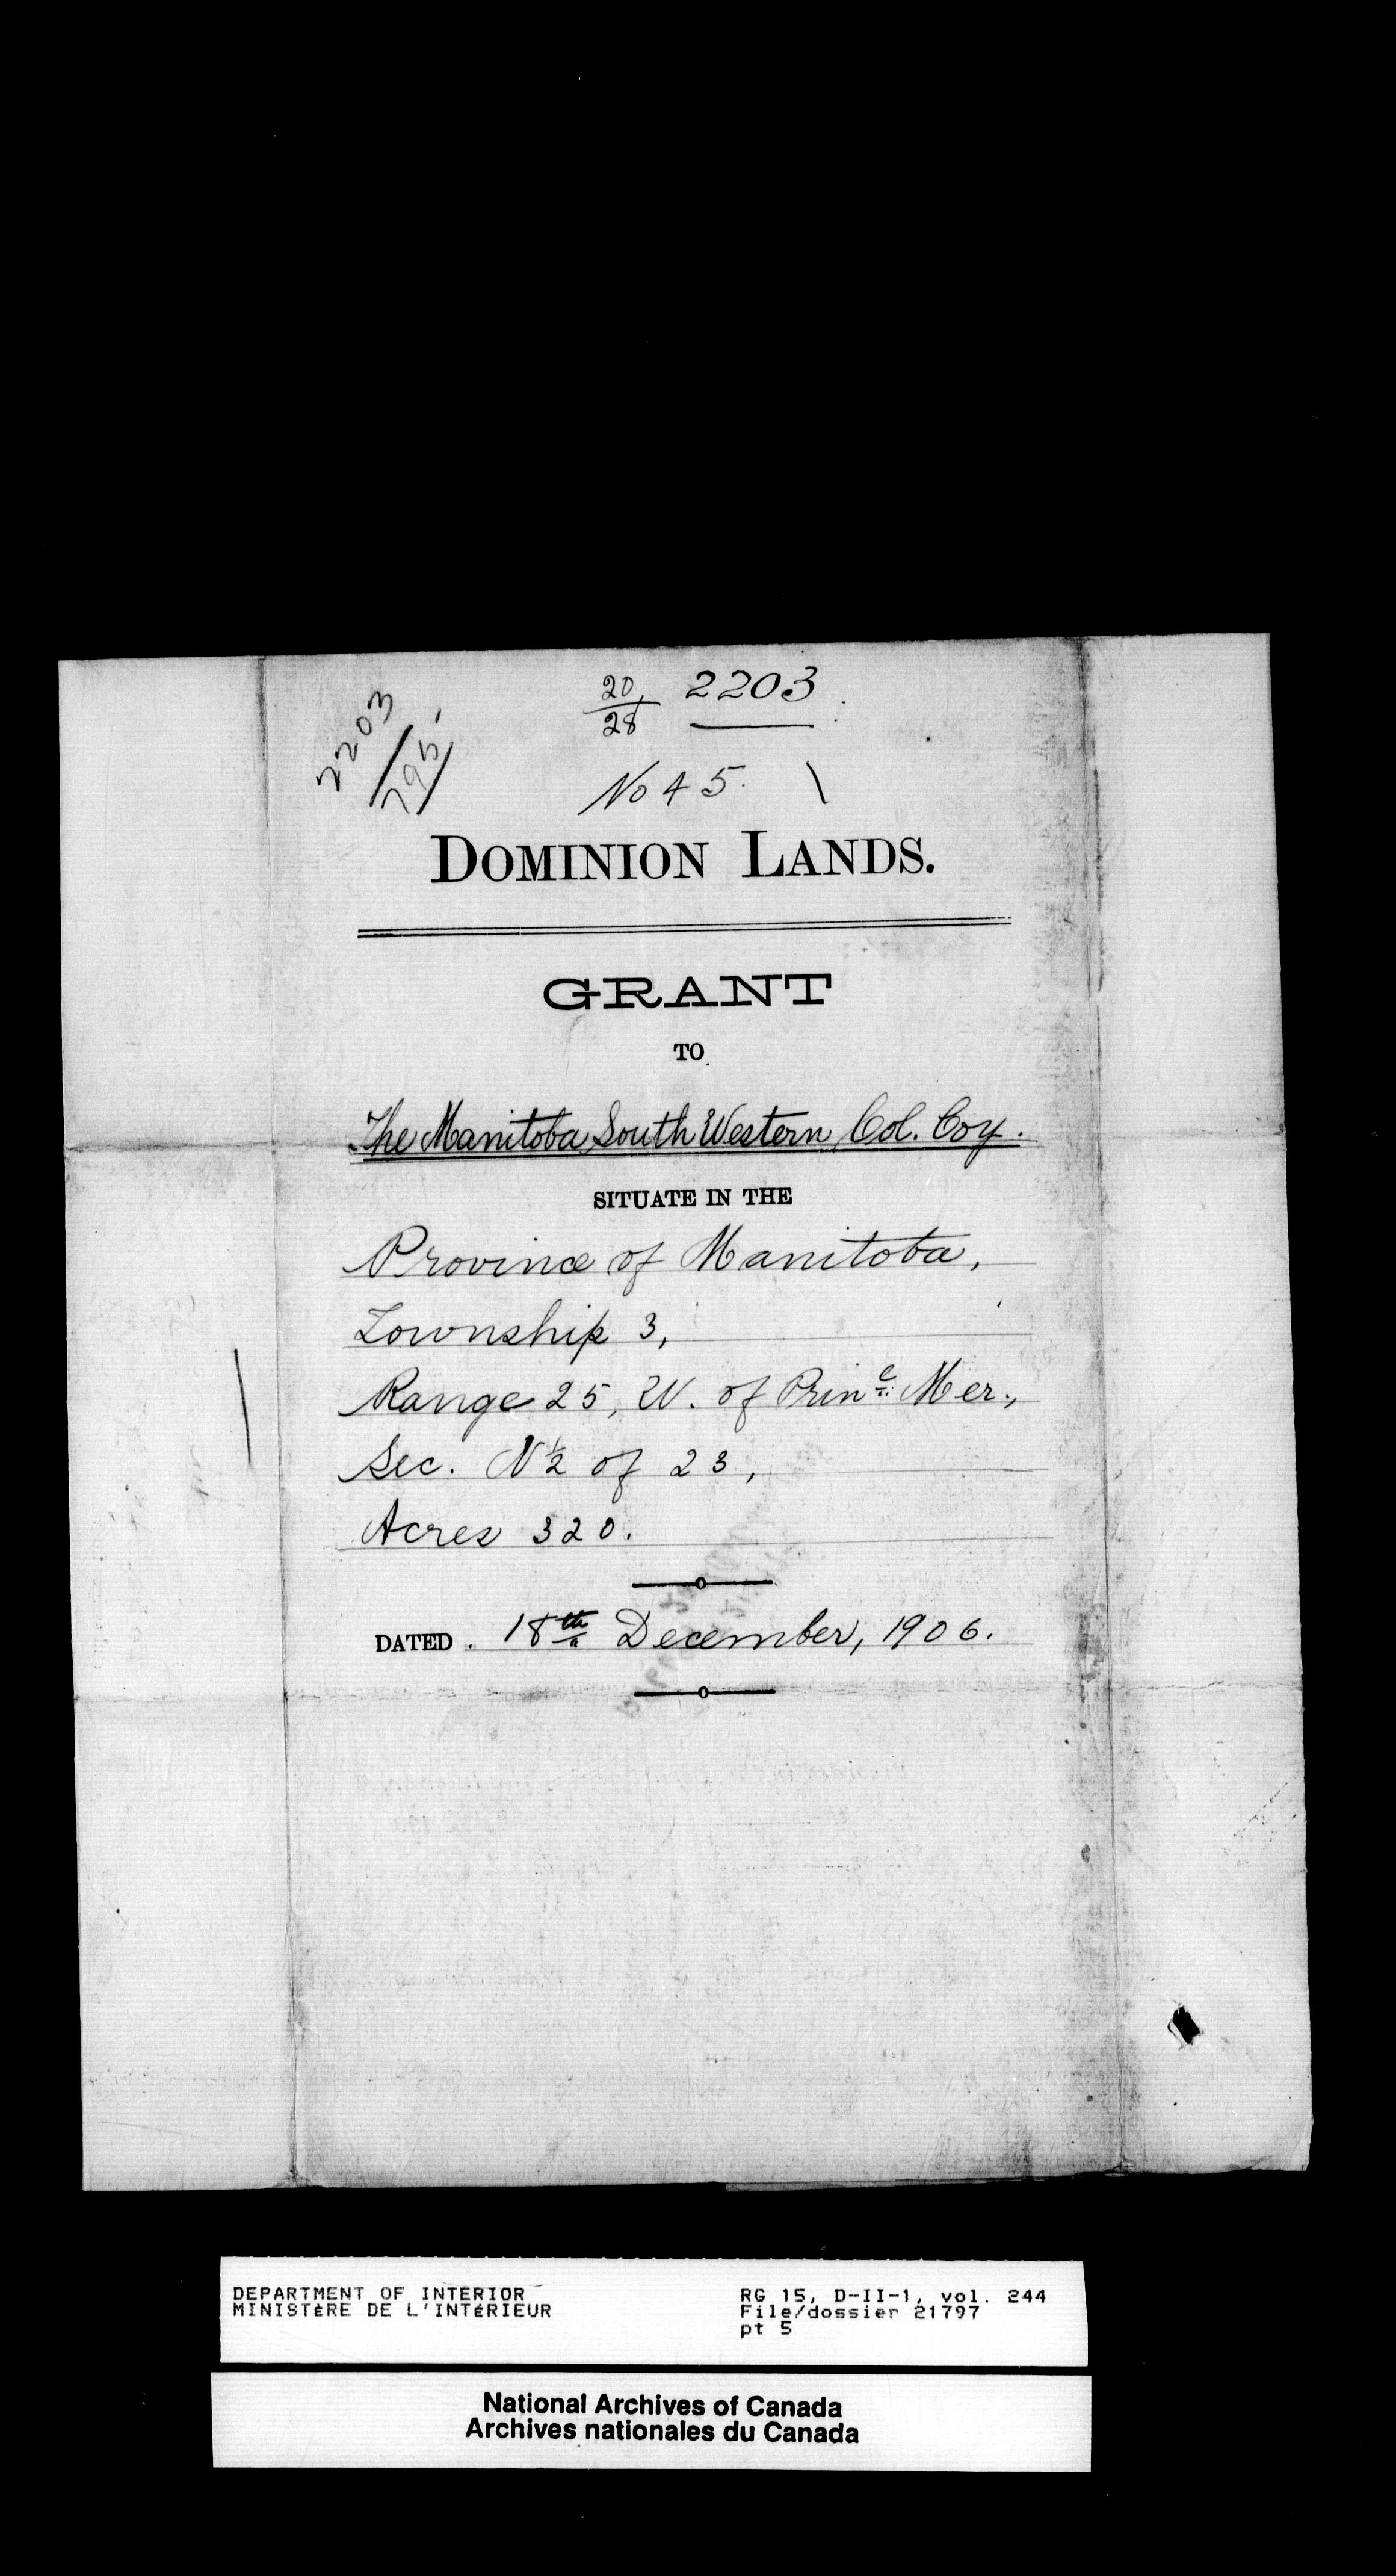 20/28 2203
2203/295
No 45.
DOMINION LANDS.
GRANT
TO
The Manitoba South Western Col. Coy.
SITUATE IN THE
Province of Manitoba,
Township 3,
Range 25, W. of Prin^e Mer.,
Sec. N½ of 23,
Acres 320.
DATED. 18th December, 1906.
DEPARTMENT OF INTERIOR
MINISTÈRE DE L'INTÉRIEUR
RG 15, D-II-1, vol. 244
File/dossier 21797
pt 5
National Archives of Canada
Archives nationales du Canada